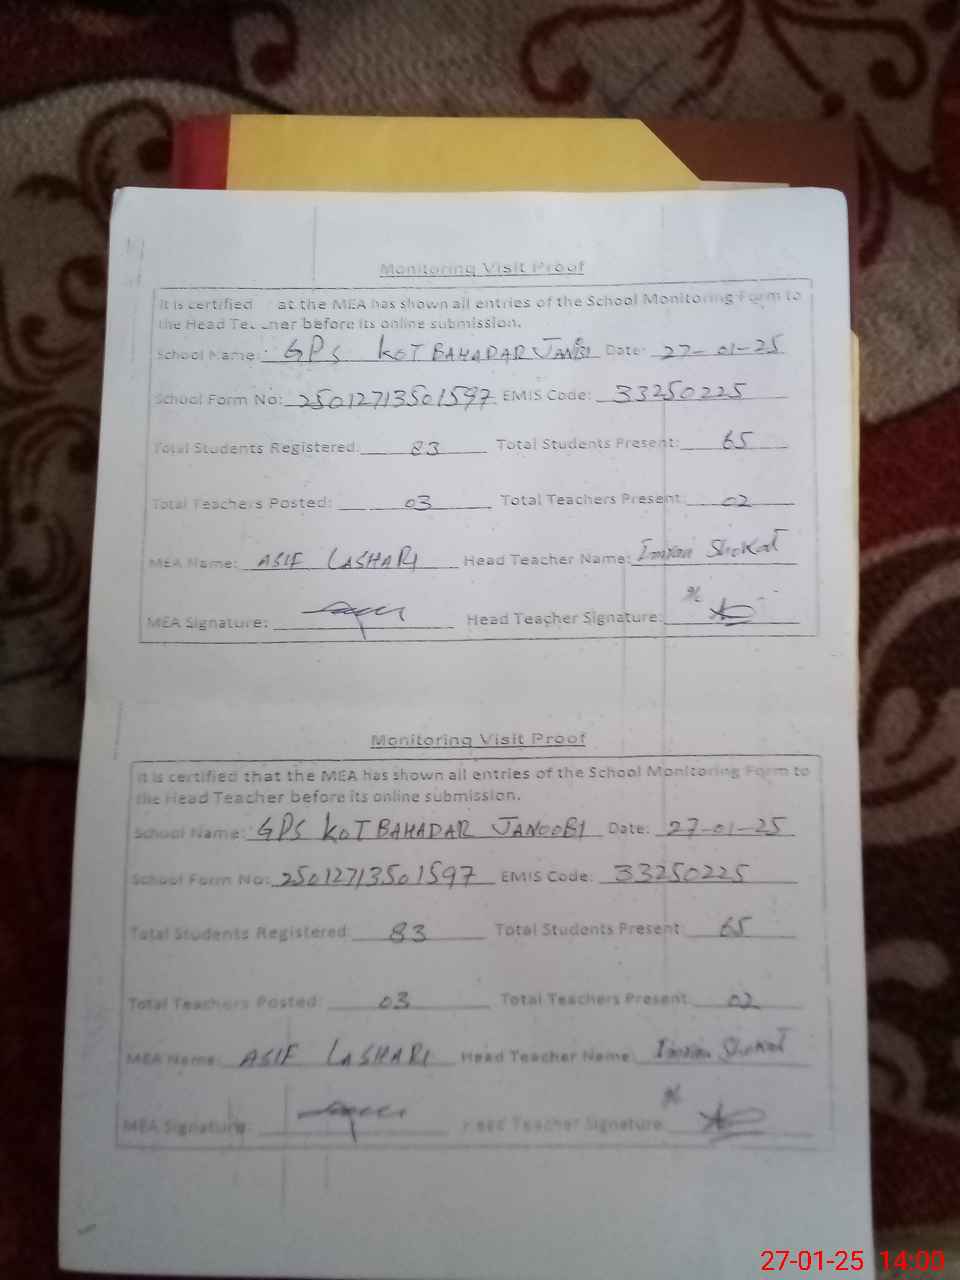 Monitoring Visit Proof
It is certified at the MEA has shown all entries of the School Monitoring Form to
the Head Teacher before its online submission.
School Name: GPS KOT BAHADAR JANBI Date: 27-01-25
School Form No: 25012713501597 EMIS Code: 33250225
Total Students Registered: 83 Total Students Present: 65
Total Teachers Posted: 03 Total Teachers Present: 02
MEA Name: ASIF LASHARI Head Teacher Name: Imran Shokat
MEA Signature: Head Teacher Signature:
Monitoring Visit Proof
It is certified that the MEA has shown all entries of the School Monitoring Form to
the Head Teacher before its online submission.
School Name: GPS KOT BAHADAR JANOOBI Date: 27-01-25
School Form No: 25012713501597 EMIS Code: 33250225
Total Students Registered: 83 Total Students Present: 65
Total Teachers Posted: 03 Total Teachers Present: 02
MEA Name: ASIF LASHARI Head Teacher Name: Imran Shokat
MEA Signature: Head Teacher Signature:
27-01-25 14:00